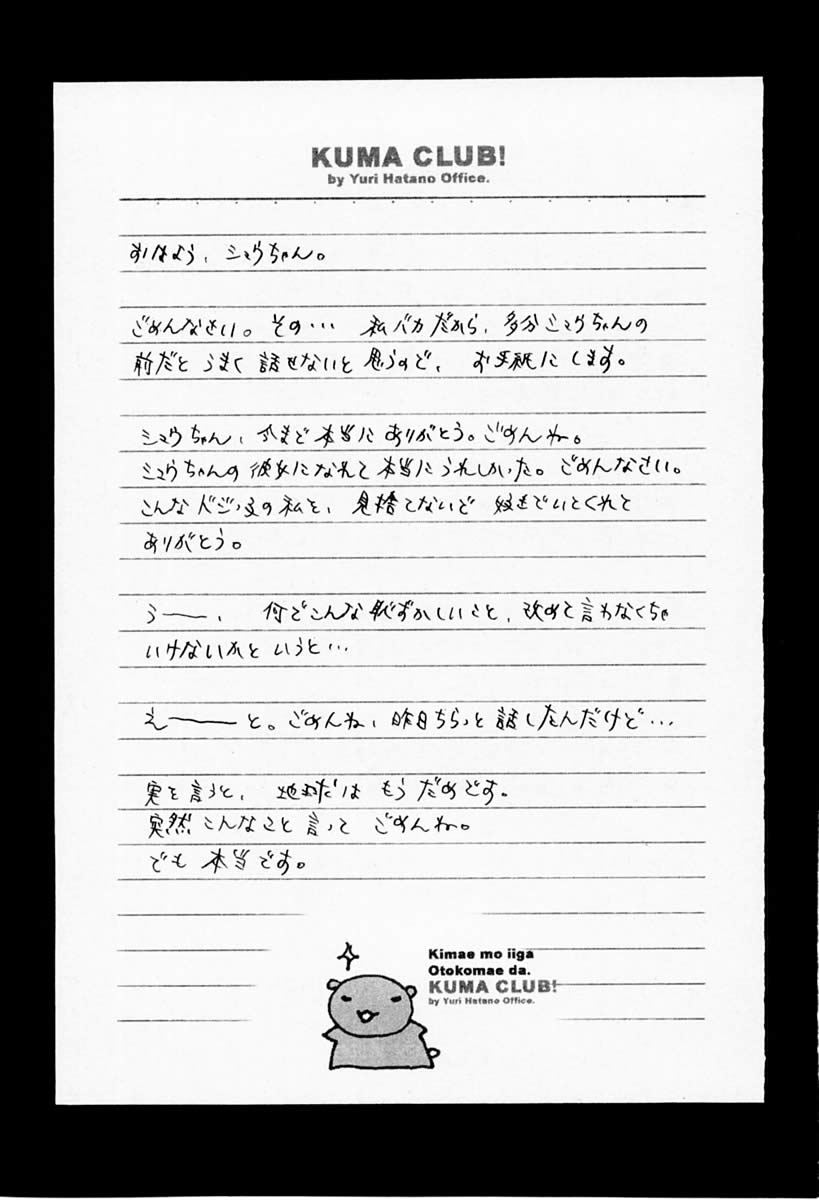 KUMA CLUB!
by Yuri Hatano Office.
おはよう、シュウちゃん。
ごめんなさい。その… 私バカだから、多分シュウちゃんの
前だと うまく 話せないと 思うので、 お手紙にします。
シュウちゃん、今まで 本当に ありがとう。ごめんね。
シュウちゃんの 彼女になれて 本当に うれしかった。ごめんなさい。
こんな ドジっ の私を、 見捨てないで でいてくれて
ありがとう。
うー、 何でこんな 恥ずかしいこと、改めて 言わなくちゃ
いけないかと いうと…
えーと。ごめんね、昨日ちらっと 話したんだけど…
実を言うと、 地球は もう だめです。
突然 こんなこと 言って ごめんね。
でも 本当です。
Kimae mo iiga
Otokomae da.
KUMA CLUB!
by Yuri Hatano Office.